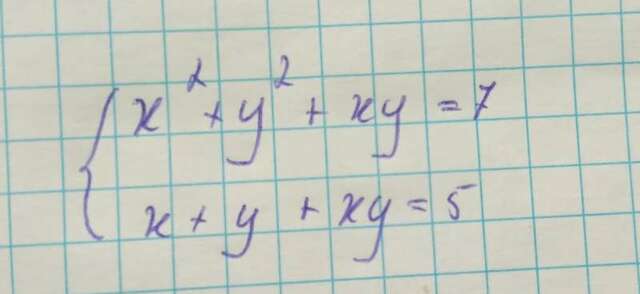 x² + y² + xy = 7
x + y + xy = 5